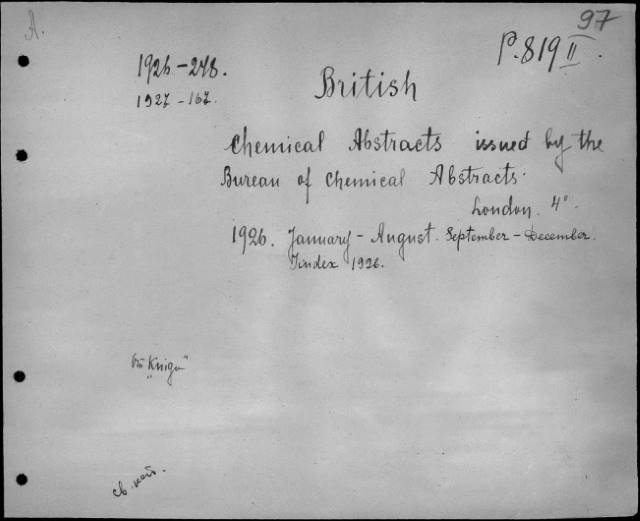 A.
97
P.819 II.
1926-248.
1927-167.
British
Chemical Abstracts issued by the
Bureau of Chemical Abstracts.
London. 4°.
1926. January - August. September - December.
Index 1926.
"Kniga"
св. кат.